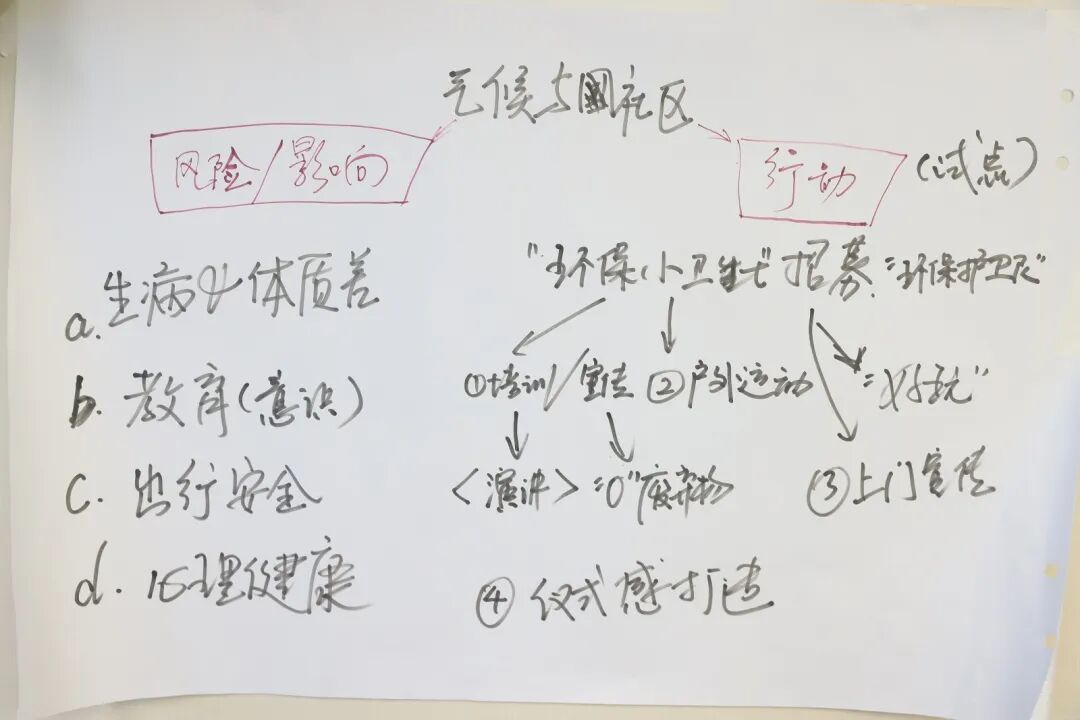 气候与社区
风险/影响
行动
(试点)
a.生病 体质差
b.教育(意识)
c.出行安全
d.心理健康
"环保小卫士"招募 "环保护卫队"
①培训/宣传 ②户外运动 "好玩"
<演讲> "0"废弃物 ③上门宣传
④仪式感打造